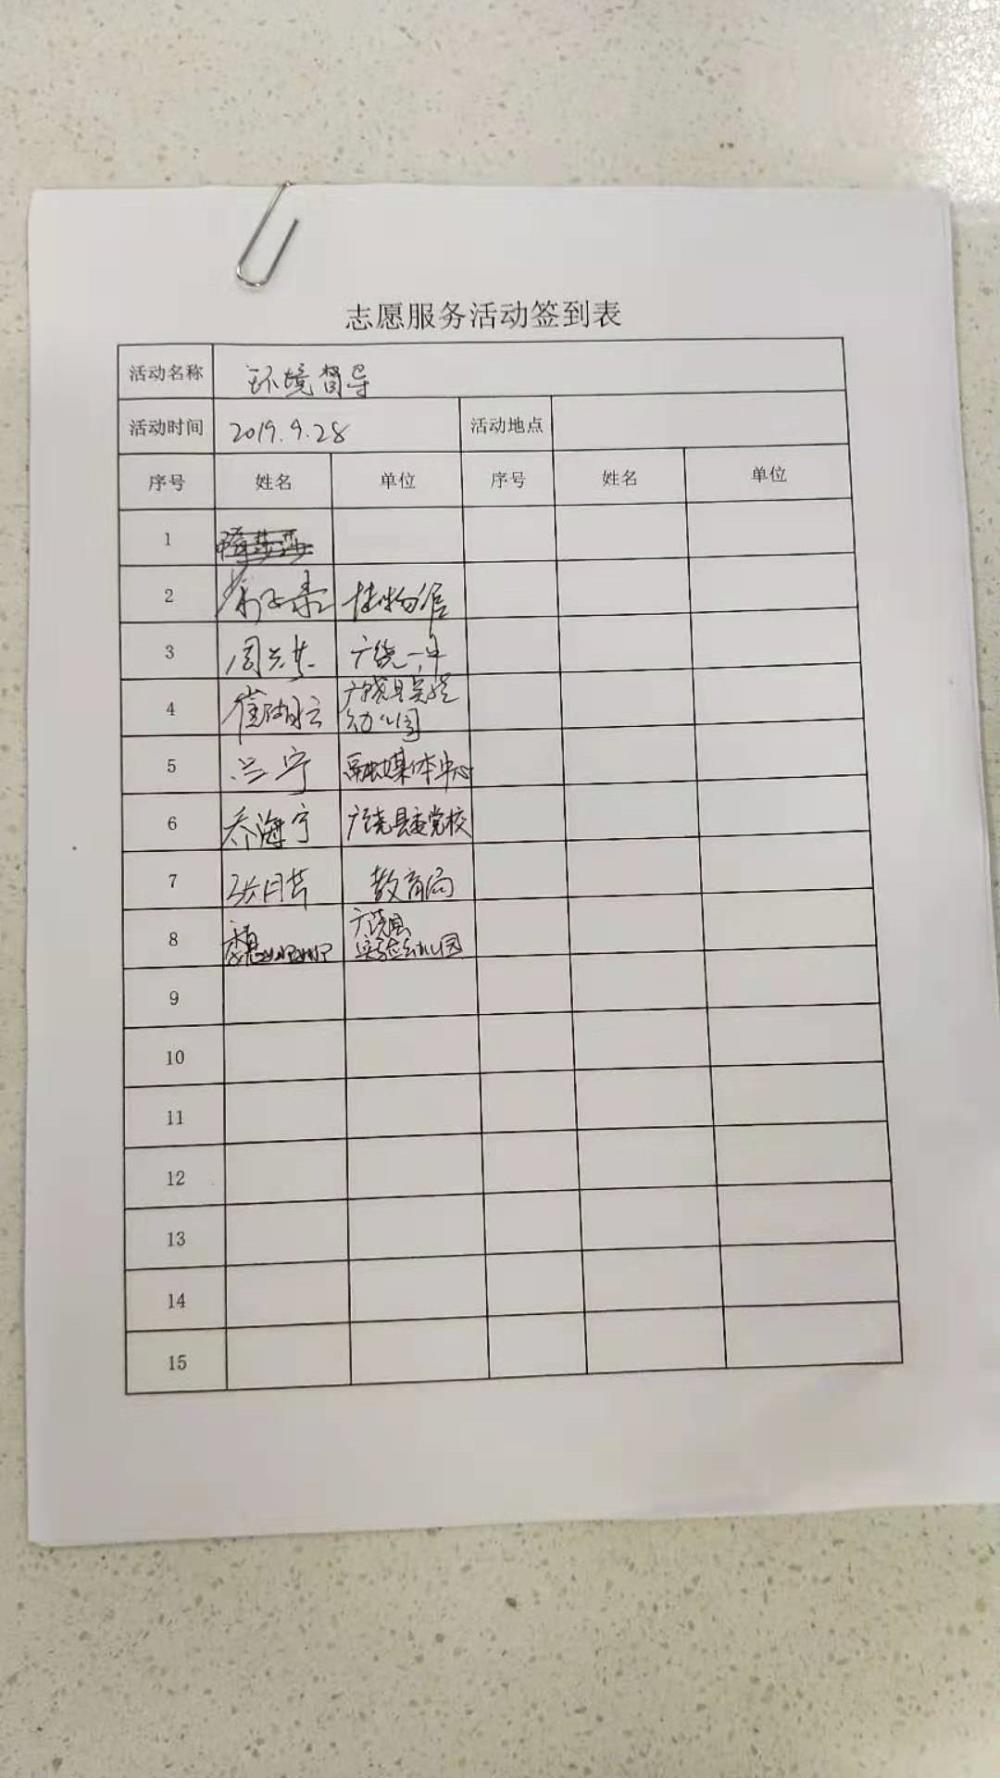 志愿服务活动签到表
活动名称 环境督导
活动时间 2019.9.28 活动地点
序号 姓名 单位 序号 姓名 单位
1
2
3 周兰英 广饶一中
4 广饶县实验
幼儿园
5 兰宁 融媒体中心
6 乔海宁 广饶县委党校
7 张月芹 教育局
8 广饶县
实验幼儿园
9
10
11
12
13
14
15